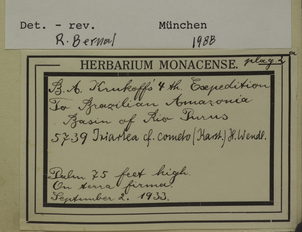 Det. - rev. München
R. Bernal 1988
HERBARIUM MONACENSE. plag. 2
B. A. Krukoff's 4 th. Expedition
To Brazilian Amazonia
Basin of Rio Purus
5739 Iriartea cf. cometo (Karst.) H. Wendl.
Palm 75 feet high.
On terra firma
September 2. 1933.